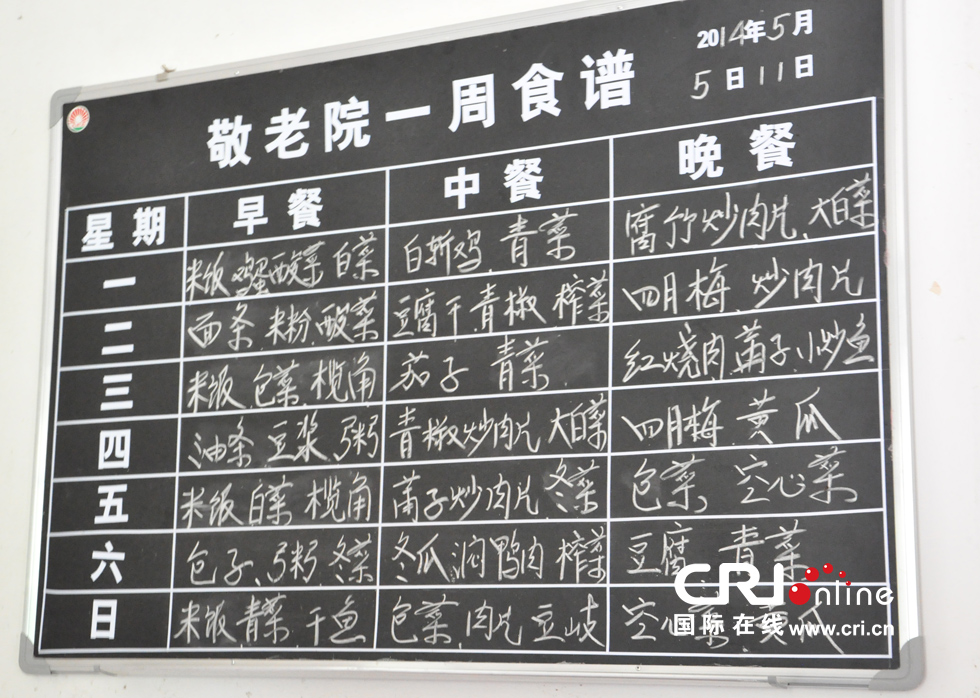 2014年5月
5日11日
敬老院一周食谱
星期 早餐 中餐 晚餐
一 米饭 鸡蛋 酸菜 白菜 白斩鸡 青菜 腐竹炒肉片 大白菜
二 面条 米粉 酸菜 豆腐干 青椒 榨菜 四月梅 炒肉片
三 米饭 包菜 榄角 茄子 青菜 红烧肉 莆子 小炒鱼
四 油条 豆浆 粥 青椒炒肉片 大白菜 四月梅 黄瓜
五 米饭 白菜 榄角 莆子炒肉片 冬菜 包菜 空心菜
六 包子 粥 冬菜 冬瓜 焖鸭肉 榨菜 豆腐 青菜
日 米饭 青菜 干鱼 包菜 肉片 豆歧 空心菜 黄瓜
CRI online
国际在线 www.cri.cn